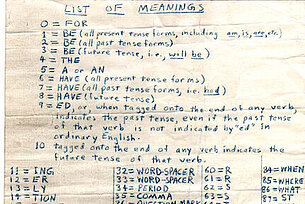 LIST OF MEANINGS
0 = FOR
1 = BE (all present tense forms, including am, is, are, etc.)
2 = BE (all past tense forms)
3 = BE (future tense, i.e., will be)
4 = THE
5 = A or AN
6 = HAVE (all present tense forms)
7 = HAVE (all past tense forms, i.e. had)
8 = HAVE (future tense)
9 = ED, or, when tagged onto the end of any verb,
indicates the past tense, even if the past tense
of that verb is not indicated by "ed" in
ordinary English.
10 tagged onto the end of any verb indicates the
future tense of that verb.
11 = ING 32 = WORD-SPACER 60 = R 84 = WHEN
12 = ER 33 = WORD-SPACER 61 = R 85 = WHERE
13 = LY 34 = PERIOD 62 = S 86 = WHAT
14 = TION 35 = COMMA 63 = S 87 = ST